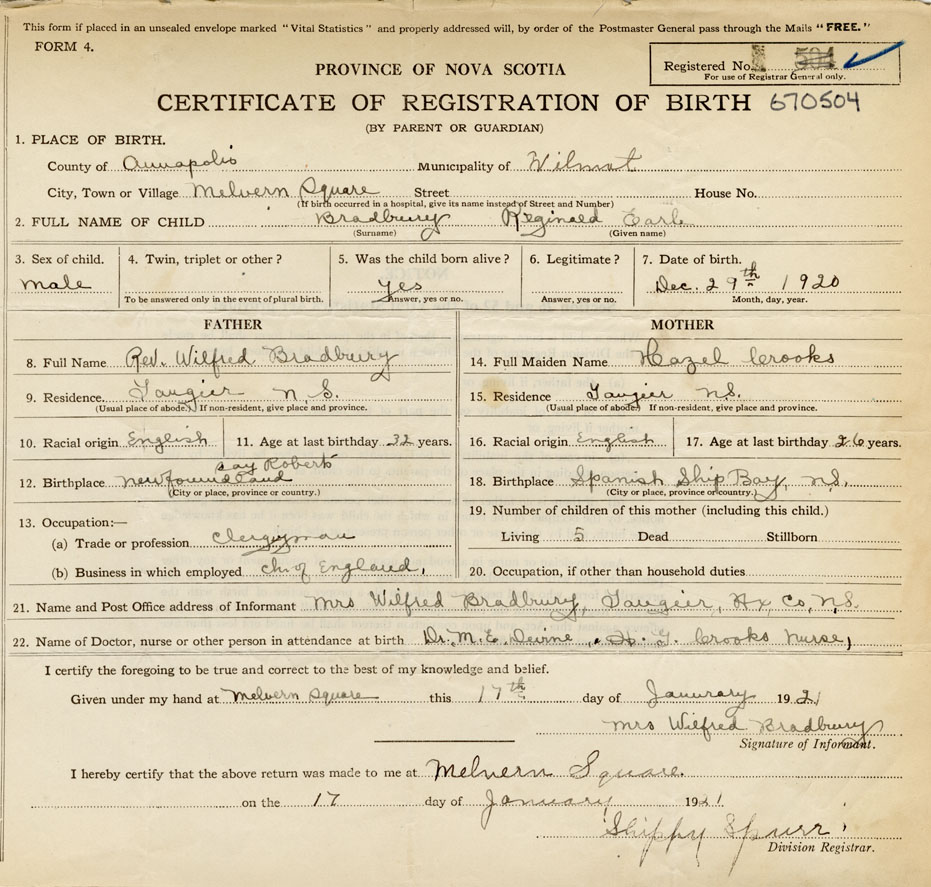 This form if placed in an unsealed envelope marked "Vital Statistics" and properly addressed will, by order of the Postmaster General pass through the Mails "FREE."
FORM 4.
Registered No. 504
For use of Registrar General only.
PROVINCE OF NOVA SCOTIA
CERTIFICATE OF REGISTRATION OF BIRTH 670504
(BY PARENT OR GUARDIAN)
1. PLACE OF BIRTH.
County of Annapolis Municipality of Wilmot
City, Town or Village Melvern Square Street House No.
(If birth occurred in a hospital, give its name instead of Street and Number)
2. FULL NAME OF CHILD Bradbury Reginald Earle
(Surname) (Given name)
3. Sex of child. 4. Twin, triplet or other ? 5. Was the child born alive ? 6. Legitimate ? 7. Date of birth.
Male yes Dec. 29th 1920
To be answered only in the event of plural birth. Answer, yes or no. Answer, yes or no. Month, day, year.
FATHER MOTHER
8. Full Name Rev. Wilfred Bradbury 14. Full Maiden Name Hazel Crooks
9. Residence. Tangier N.S. 15. Residence Tangier N.S.
(Usual place of abode.) If non-resident, give place and province. (Usual place of abode) If non-resident, give place and province.
10. Racial origin English 11. Age at last birthday 32 years. 16. Racial origin English 17. Age at last birthday 26 years.
Bay Roberts
12. Birthplace Newfoundland 18. Birthplace Spanish Ship Bay, N.S.
(City or place, province or country.) (City or place, province or country.)
13. Occupation:— 19. Number of children of this mother (including this child.)
(a) Trade or profession Clergyman Living 5 Dead Stillborn
(b) Business in which employed Ch. of England, 20. Occupation, if other than household duties
21. Name and Post Office address of Informant Mrs Wilfred Bradbury, Tangier, Hx Co, N.S.
22. Name of Doctor, nurse or other person in attendance at birth Dr. M. E. Crooks Nurse,
I certify the foregoing to be true and correct to the best of my knowledge and belief.
Given under my hand at Melvern Square this 17th day of Janurary 1921
Mrs Wilfred Bradbury
Signature of Informant.
I hereby certify that the above return was made to me at Melvern Square.
on the 17 day of January 1921
Shippy Spurr
Division Registrar.